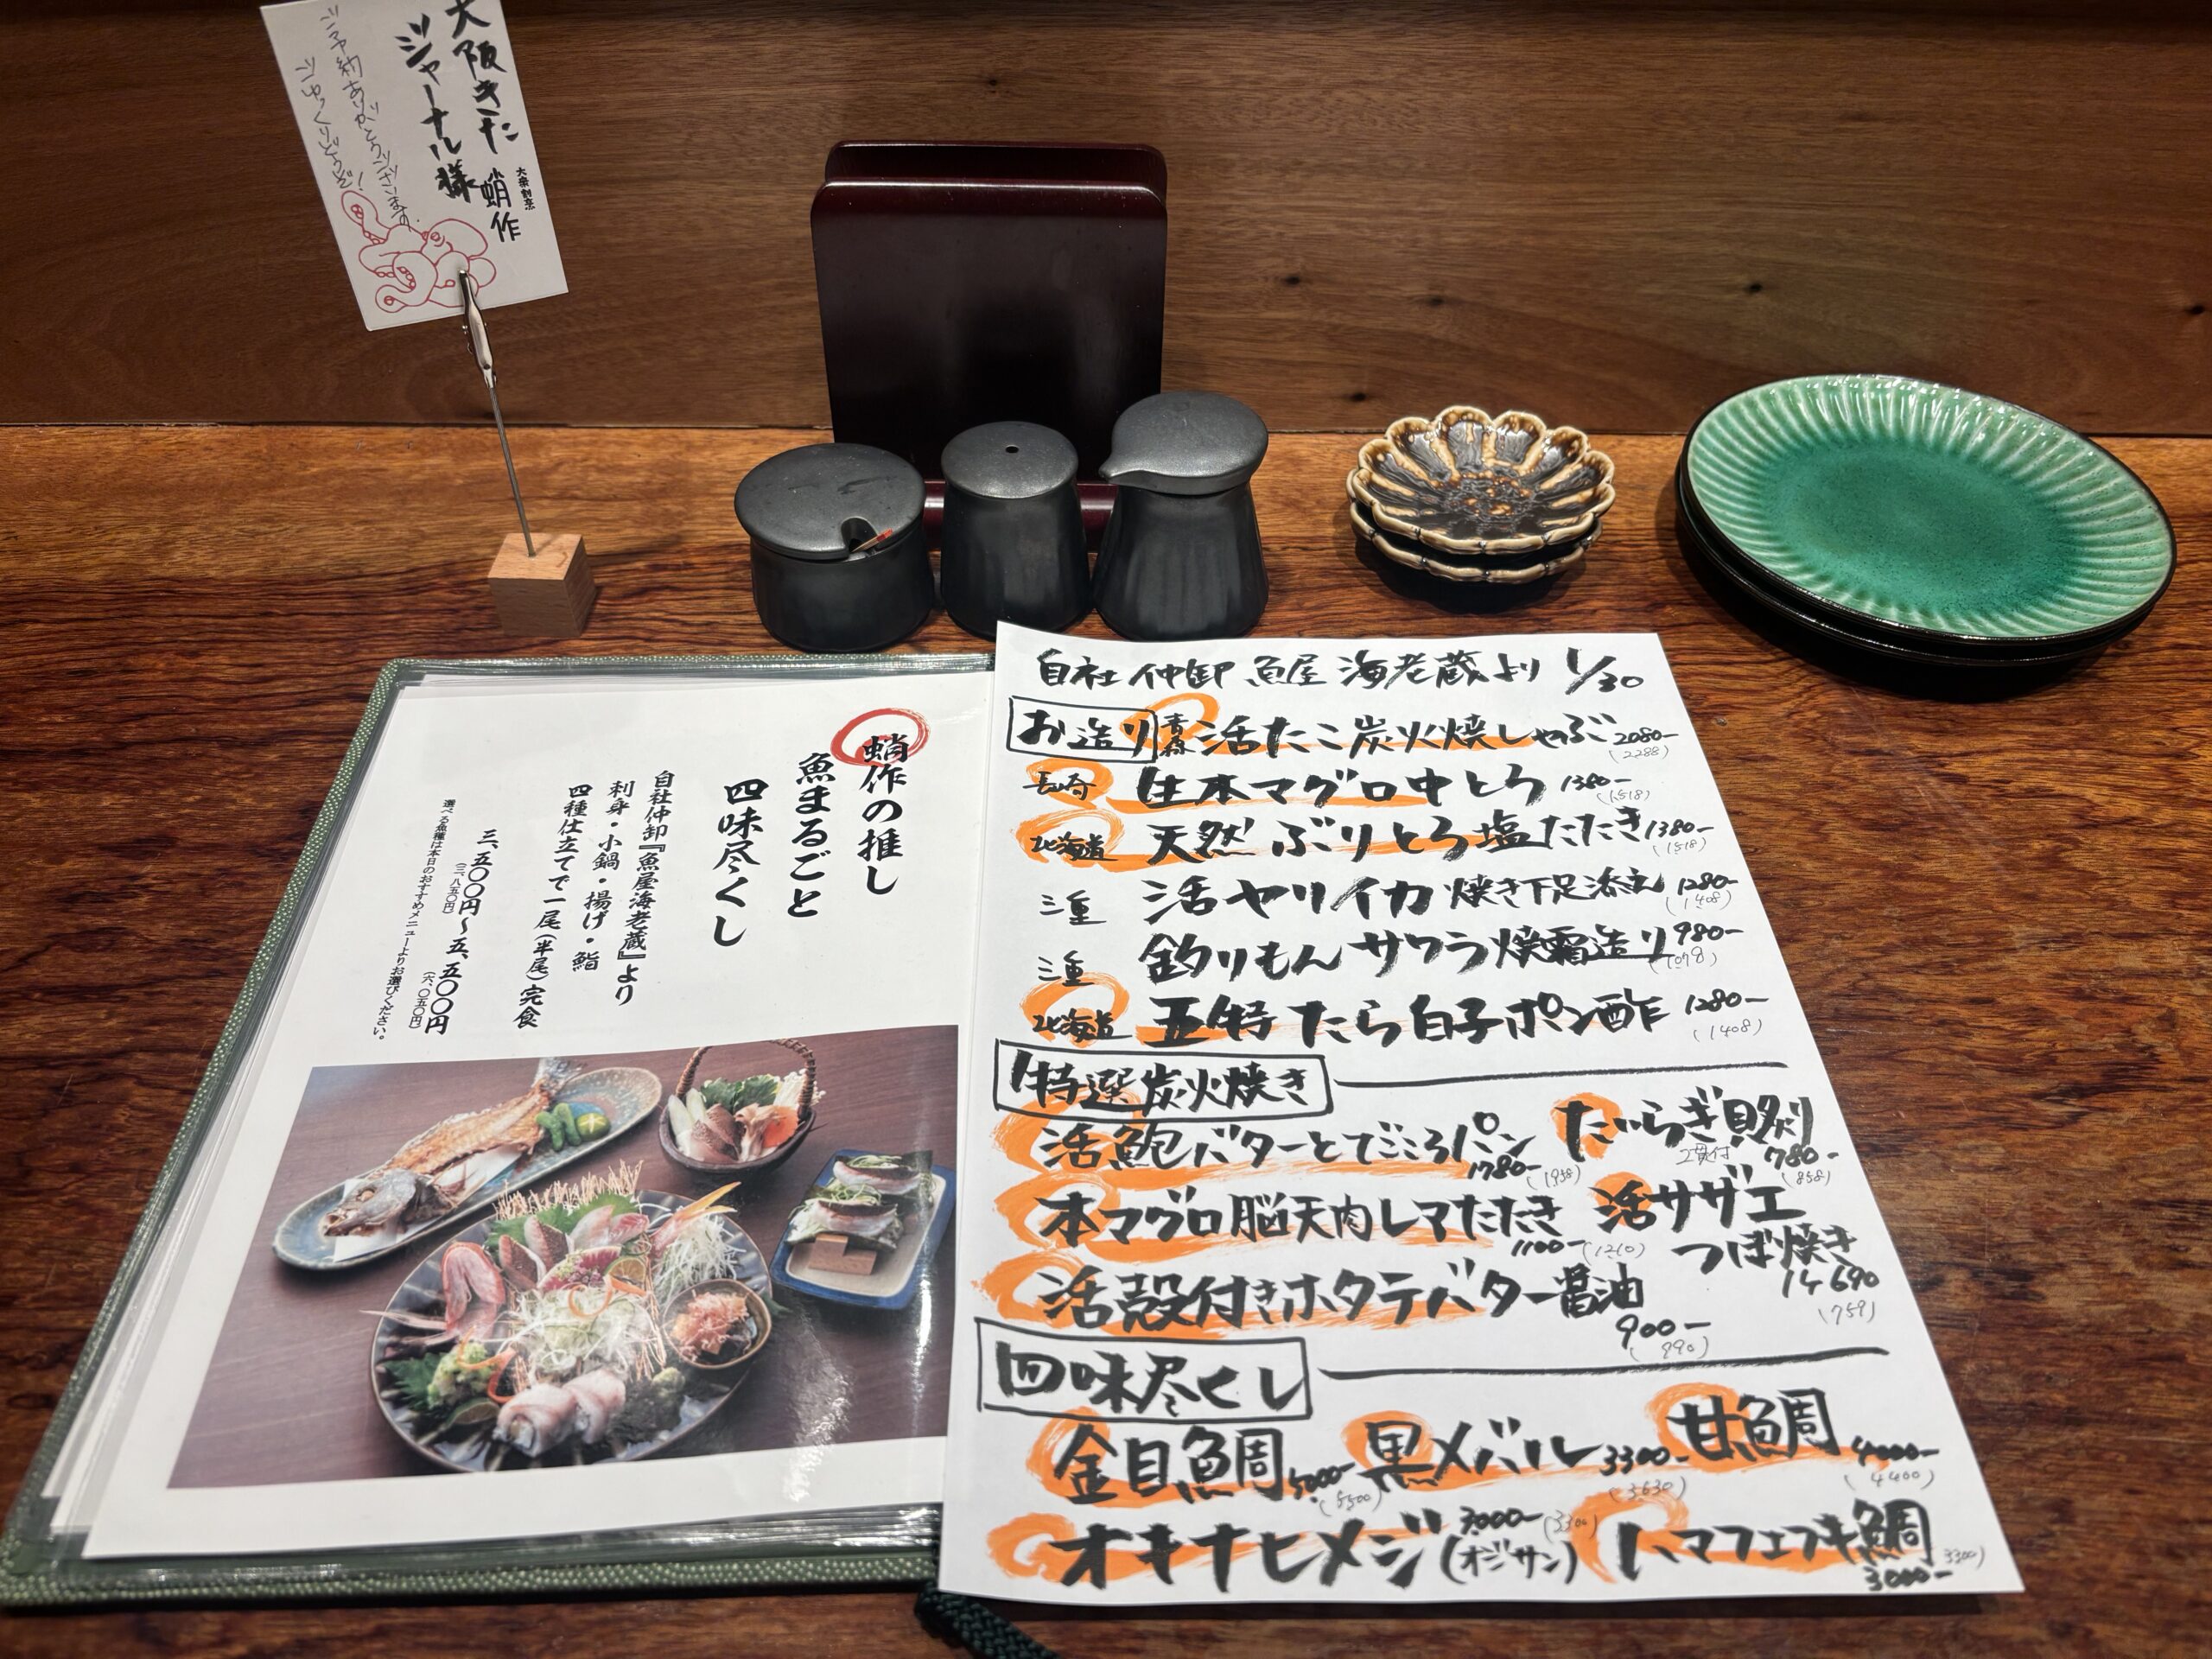 大阪きた
ジャーナル様
ご予約ありがとうございます。
ごゆっくりどうぞ!
大衆割烹
蛸作
蛸作の推し
魚まるごと
四味尽くし
自社仲卸『魚屋海老蔵』より
刺身・小鍋・揚げ・鮨
四種仕立てで一尾(半尾)完食
三、五〇〇円〜五、五〇〇円
(三、八五〇円)
(六、〇五〇円)
選べる魚種は本日のおすすめメニューよりお選びください。
自社仲卸 魚屋 海老蔵より 1/30
お造り
青森 活たこ炭火焼しゃぶ 2080-
(2288)
長崎 生本マグロ中とろ 1380-
(1518)
北海道 天然ぶりとろ塩たたき 1380-
(1518)
三重 活ヤリイカ 焼き下足添え 1280-
(1408)
三重 釣りもん サワラ焼霜造り 980-
(1078)
北海道 五特 たら白子ポン酢 1280-
(1408)
特選炭火焼き
活鮑バターとてごころパン
1780- (1958)
たいらぎ貝炙り
2貫付 780-
(858)
本マグロ脳天肉レマたたき
1100- (1210)
活サザエ
つぼ焼き
1ヶ690
(759)
活殻付きホタテバター醤油
900-
(990)
四味尽くし
金目鯛 5000-
(5500)
黒メバル 3300-
(3630)
甘鯛 4000-
(4400)
オキナヒメジ 3000- (3300)
(オジサン)
ハマフエフキ鯛
3000- 3300)